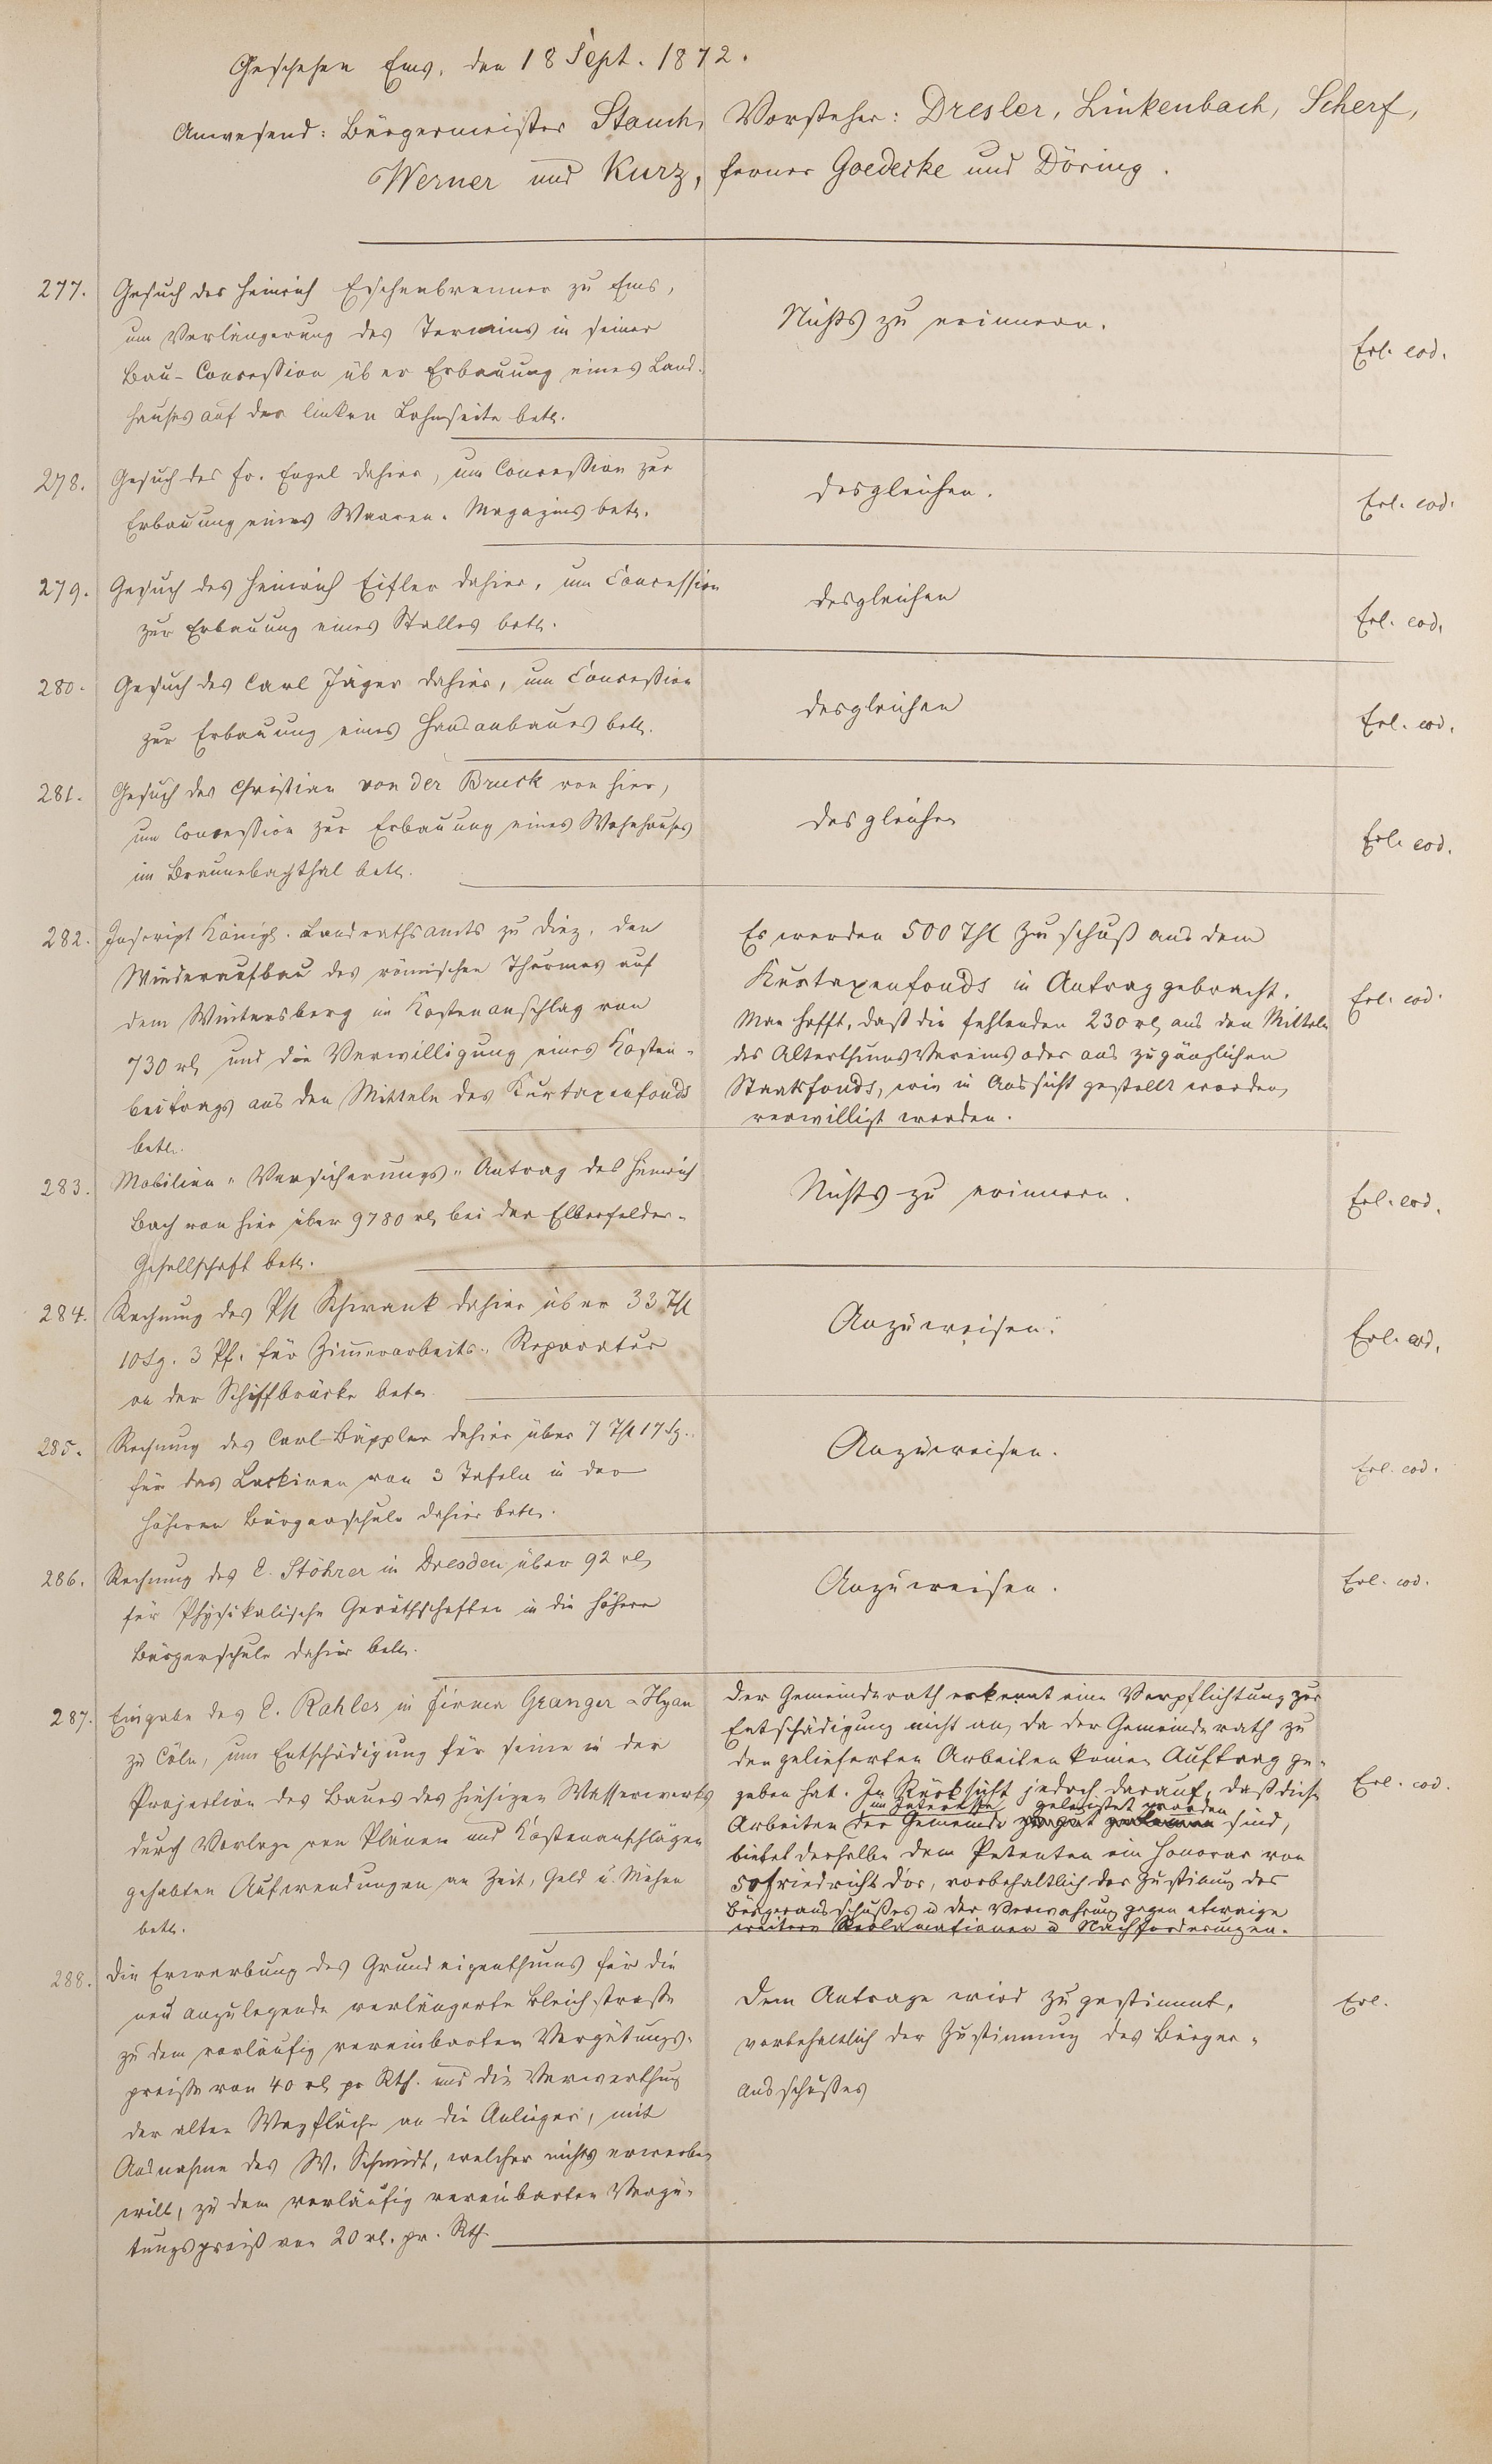 Geschehen Ems, den 18 Sept. 1872.
Anwesend: Bürgermeister Stauch, Vorsteher: Dresler, Linkenbach, Scherf,
Werner und Kurz, ferner Goedecke und Döring.
277. Gesuch des Heinrich Eschenbrenner zu Ems,
um Verlängerung des Termins in seiner
Bau-Concession über Erbauung eines Land-
hauses auf der linken Lahnseite betr.
Nichts zu erinnern.
Erl. eod.
278. Gesuch des Fr. Engel dahier, um Concession zur
Erbauung eines Waaren-Magazins betr.
desgleichen.
Erl. eod.
279. Gesuch des Heinrich Eifler dahier, um Concession
zur Erbauung eines Stalles betr.
desgleichen
Erl. eod.
280. Gesuch des Carl Jäger dahier, um Concession
zur Erbauung eines Hausanbaues betr.
desgleichen
Erl. eod.
281. Gesuch des Christian von der Bruck von hier,
um Concession zur Erbauung eines Wohnhauses
im Braunebachthal betr.
desgleichen
Erl. eod.
282. Inscript Königl. Landrathsamts zu Diez, den
Wiederaufbau des römischen Thurmes auf
dem Wintersberg im Kostenanschlag von
730 rl und die Verwilligung eines Kosten-
beitrags aus den Mitteln des Kurtaxenfonds
betr.
Es werden 500 Thl Zuschuß aus dem
Kurtaxenfonds in Antrag gebracht.
Man hofft, daß die fehlenden 230 rl aus den Mitteln
des Alterthums Vereins oder aus zugänglichen
Staatsfonds, wie in Aussicht gestellt worden,
verwilligt werden.
Erl. eod.
283. Mobilien-Versicherungs-Antrag des Heinrich
Bach von hier über 9780 rl bei der Elberfelder-
Gesellschaft betr.
Nichts zu erinnern.
Erl. eod.
284. Rechnung des Ph Schwank dahier über 33 Thl
10 Sg. 3 Pf. für Zimmerarbeits-Reparatur
an der Schiffbrücke betr.
Anzuweisen.
Erl. eod.
285. Rechnung des Carl Bäppler dahier über 7 Thl 17 Sg.
für das Lackiren von 3 Tafeln in der
höheren Bürgerschule dahier betr.
Anzuweisen.
Erl. eod.
286. Rechnung des E. Stöhrer in Dresden über 92 rl
für Physikalische Geräthschaften in die höhere
Bürgerschule dahier betr.
Anzuweisen.
Erl. eod.
287. Eingabe des E. Rahles in Firma Granger & Hyan
zu Cöln, um Entschädigung für seine in der
Projection des Baues des hiesigen Wasserwerks
durch Vorlage von Plänen und Kostenanschlägen
gehabten Aufwendungen an Zeit, Geld u. Mühen
betr.
Der Gemeinderath erkennt eine Verpflichtung zur
Entschädigung nicht an, da der Gemeinderath zu
den gelieferten Arbeiten keinen Auftrag ge-
geben hat. In Rücksicht jedoch darauf, daß diese
im Interesse geleistet worden
Arbeiten der Gemeinde sind,
bietet derselbe dem Petenten ein Honorar von
50 Friedrichs'dor, vorbehaltlich der Zustimung des
Bürgerausschußes u der Verwahrung gegen etwaige
weitere Reclamationen u Nachforderungen.
Erl. eod.
288. Die Erwerbung des Grundeigenthums für die
neu anzulegende verlängerte Bleichstraße
zu dem vorläufig vereinbarten Vergütungs-
preise von 40 rl pr Rth. und die Verwerthung
der alten Wegfläche an die Anlieger, mit
Ausnahme des W. Schmidt, welcher nichts erwerben
will, zu dem vorläufig vereinbarten Vergü-
tungspreis von 20 rl. pr. Rth.
Dem Antrage wird zugestimmt,
vorbehaltlich der Zustimmung des Bürger-
ausschußes
Erl.